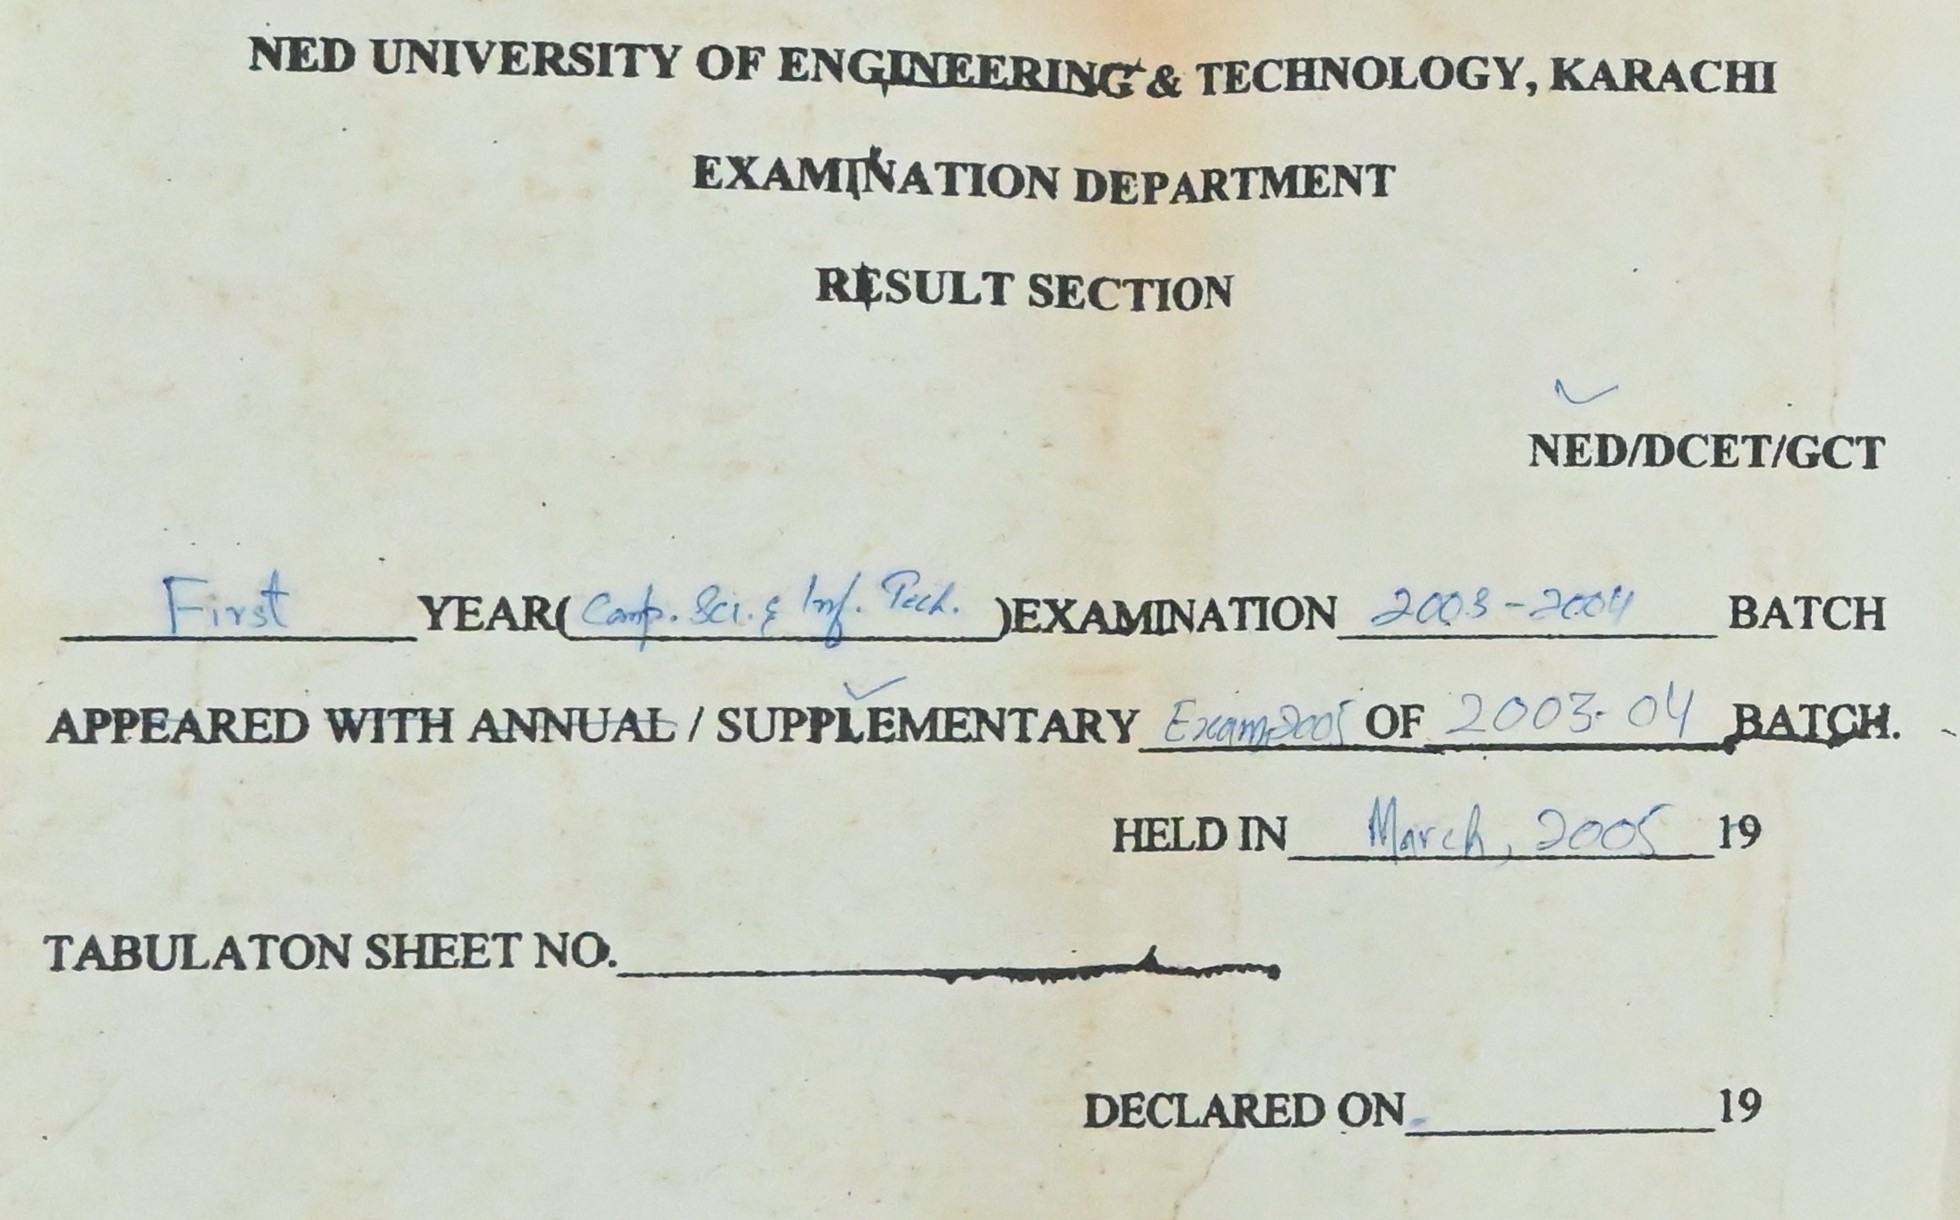 NED UNIVERSITY OF ENGINEERING & TECHNOLOGY, KARACHI
EXAMINATION DEPARTMENT
RESULT SECTION
NED/DCET/GCT
First YEAR( Comp. Sci. & Inf. Tech. )EXAMINATION 2003-2004 BATCH
APPEARED WITH ANNUAL / SUPPLEMENTARY Exam2005 OF 2003-04 BATCH.
HELD IN March, 2005 19
TABULATON SHEET NO.
DECLARED ON 19